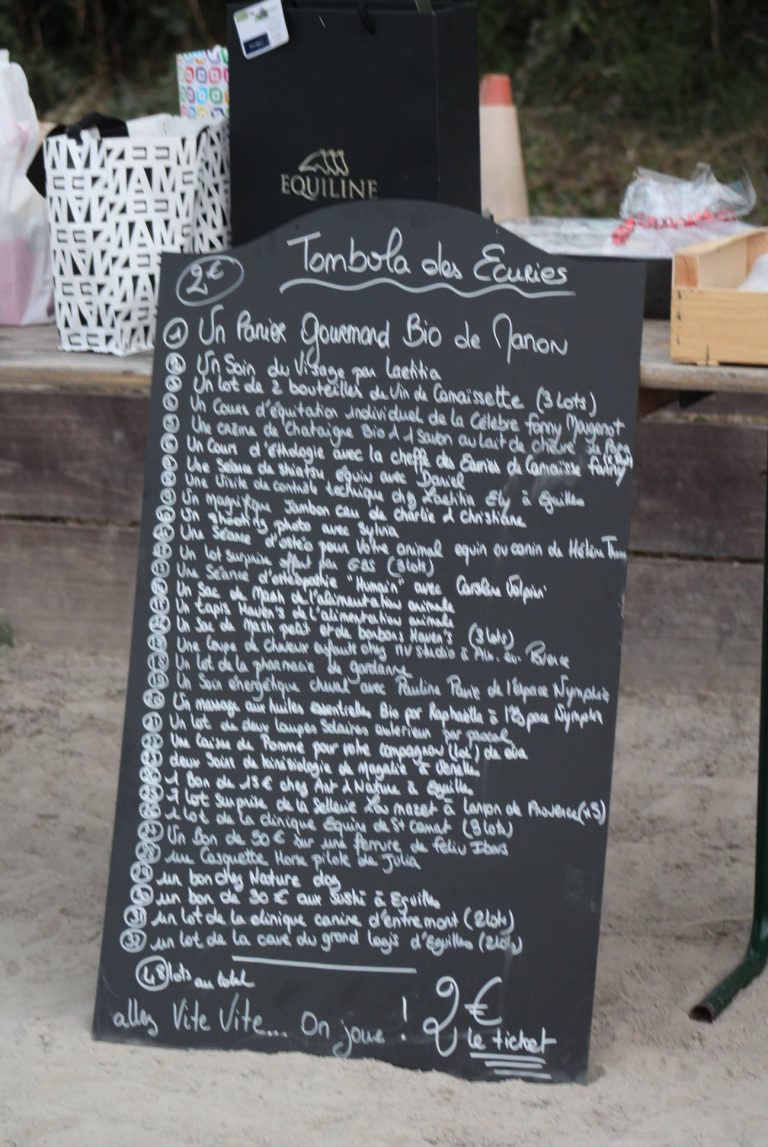 EQUILINE
2€
Tombola des Ecuries
1 Un Panier Gourmand Bio de Manon
Un Soin du Visage par Laetitia
Un lot de 2 bouteilles de Vin de Camaïssette (3 lots)
Un Cours d'équitation individuel de la Célèbre Fanny Maugenot
Une crème de Chataigne Bio 1 savon au lait de chèvre de
Un Cours d'éthologie avec la cheffe des Ecuries de Camaïsse
Une Séance de shiatsu équin avec Daniel
Une Visite de contrôle technique chez Laetitia Ely à Eguilles
Un magnifique Jambon cau de charlie et christiane
Un shooting photo avec Sylvia
Une Séance d'ostéo pour Votre animal equin ou canin de Hélène
Un lot surprise offert par GBS (3 lots)
Une Séance d'ostéopathie "Humain" avec Caroline Volpini
Un Sac de Mash de l'alimentation animale
Un tapis Haver's de l'alimentation animale
Un Sac de Mash petit et de bonbons Haver's (3 lots)
Une Coupe de cheveux enfant chez NV Studio à Aix. en. Provence
Un Lot de la pharmacie de gardanne
Un Soin énergétique cheval avec Pauline de l'Espace Nymphéa
Un massage aux huiles essentielles Bio par Raphaëlle à l'Espace Nymphéa
Un lot de deux Loupes Solaires par pascal
Une Caisse de Pomme pour votre compagnon (lot) de
deux Soins de kinésiologie de Magalie à Venelles
1 Bon de 15€ chez Art & Nature à Eguilles
1 Lot Surprise de la Sellerie Lou mazet à Lançon de Provence (x3)
1 lot de la clinique Equine de St Canat (3 lots)
Un Bon de 50€ sur une ferrure de Féliu Ibars
une Casquette Horse pilote de Julia
un bon chez Nature dog
un bon de 30€ aux Sushi à Eguilles
un lot de la clinique canine d'entremont (2 lots)
un lot de la cave du grand logis d'Eguilles (2 lots)
48 lots au total
allez Vite Vite... On joue ! 2€
le ticket